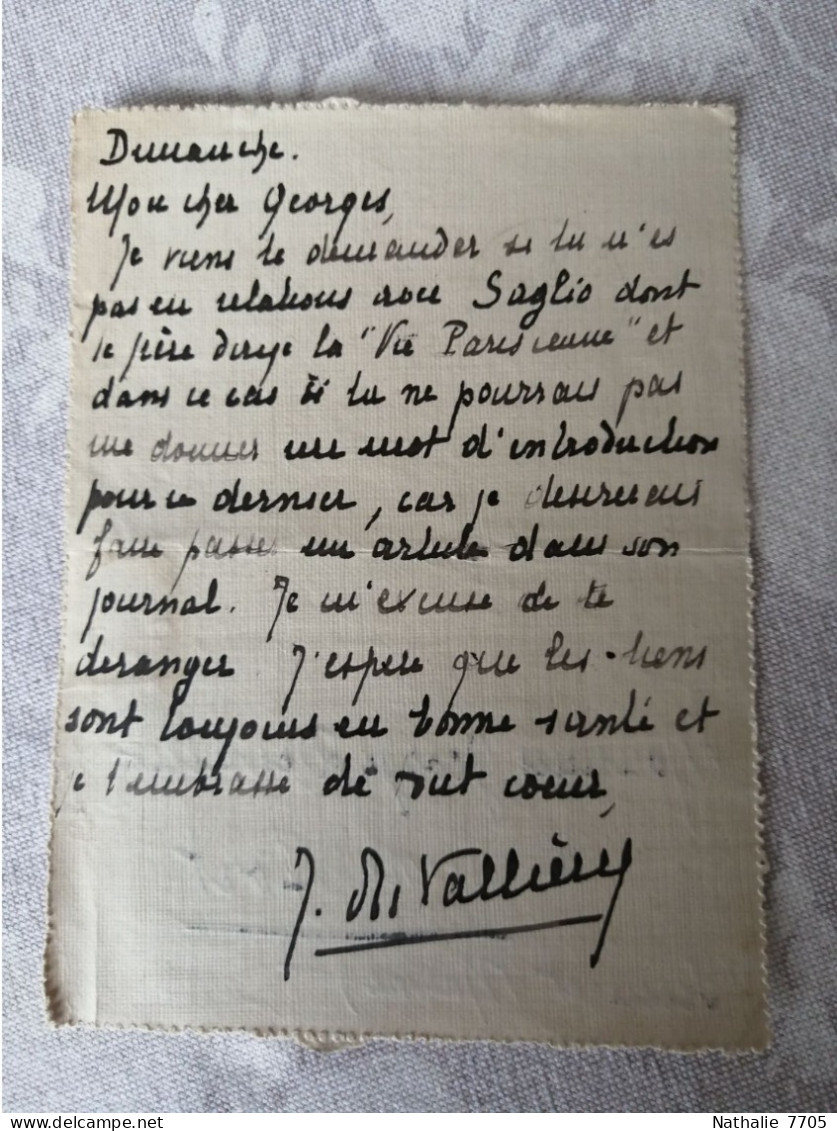 Dimanche.
Mon cher Georges,
Je viens te demander si tu n'es
pas en relations avec Saglio dont
le père dirige la "Vie Parisienne" et
dans ce cas si tu ne pourrais pas
me donner un mot d'introduction
pour ce dernier, car je desirerais
faire passer un article dans son
journal. Je m'excuse de te
deranger J'espere que les tiens
sont toujours en bonne santé et
je t'embrasse de tout coeur,
J. de Vallières
Nathalie 7705